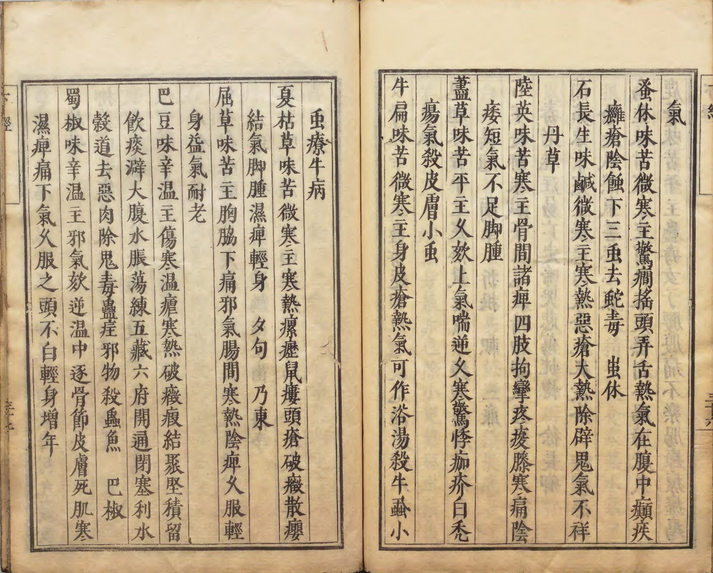 氣
蚤休味苦微寒主驚癎搖頭弄舌熱氣在腹中癲疾
癰瘡陰蝕下三虫去蛇毒　蚩休
石長生味鹹微寒主寒熱惡瘡大熱除辟鬼氣不祥
丹草
陸英味苦寒主骨間諸痺四肢拘攣疼痠膝寒痛陰
痿短氣不足脚腫
藎草味苦平主久欬上氣喘逆久寒驚悸痂疥白禿
瘍氣殺皮膚小虫
牛扁味苦微寒主身皮瘡熱氣可作浴湯殺牛蝨小
虫療牛病
夏枯草味苦微寒主寒熱瘰癧鼠瘻頭瘡破癥散癭
結氣脚腫濕痺輕身　夕句　乃東
屈草味苦主胸脇下痛邪氣腸間寒熱陰痺久服輕
身益氣耐老
巴豆味辛温主傷寒温瘧寒熱破癥瘕結聚堅積留
飲痰澼大腹水脹蕩練五藏六府開通閉塞利水
穀道去惡肉除鬼毒蠱疰邪物殺蟲魚　巴椒
蜀椒味辛温主邪氣欬逆温中逐骨節皮膚死肌寒
濕痺痛下氣久服之頭不白輕身增年